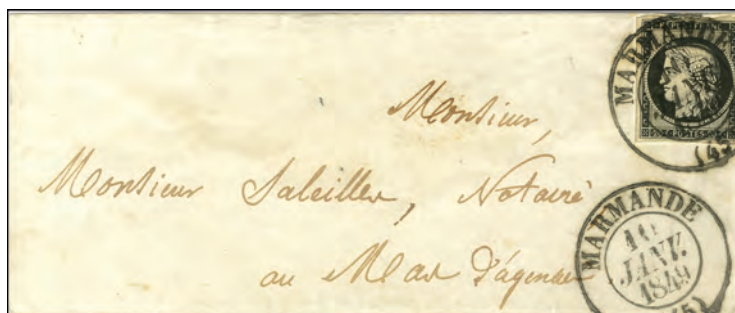 MARMANDE
POSTES
(4
Monsieur,
Monsieur Saleilles, Notaire
au Mas d'agenais
MARMANDE
10
JANV.
1849
(45)